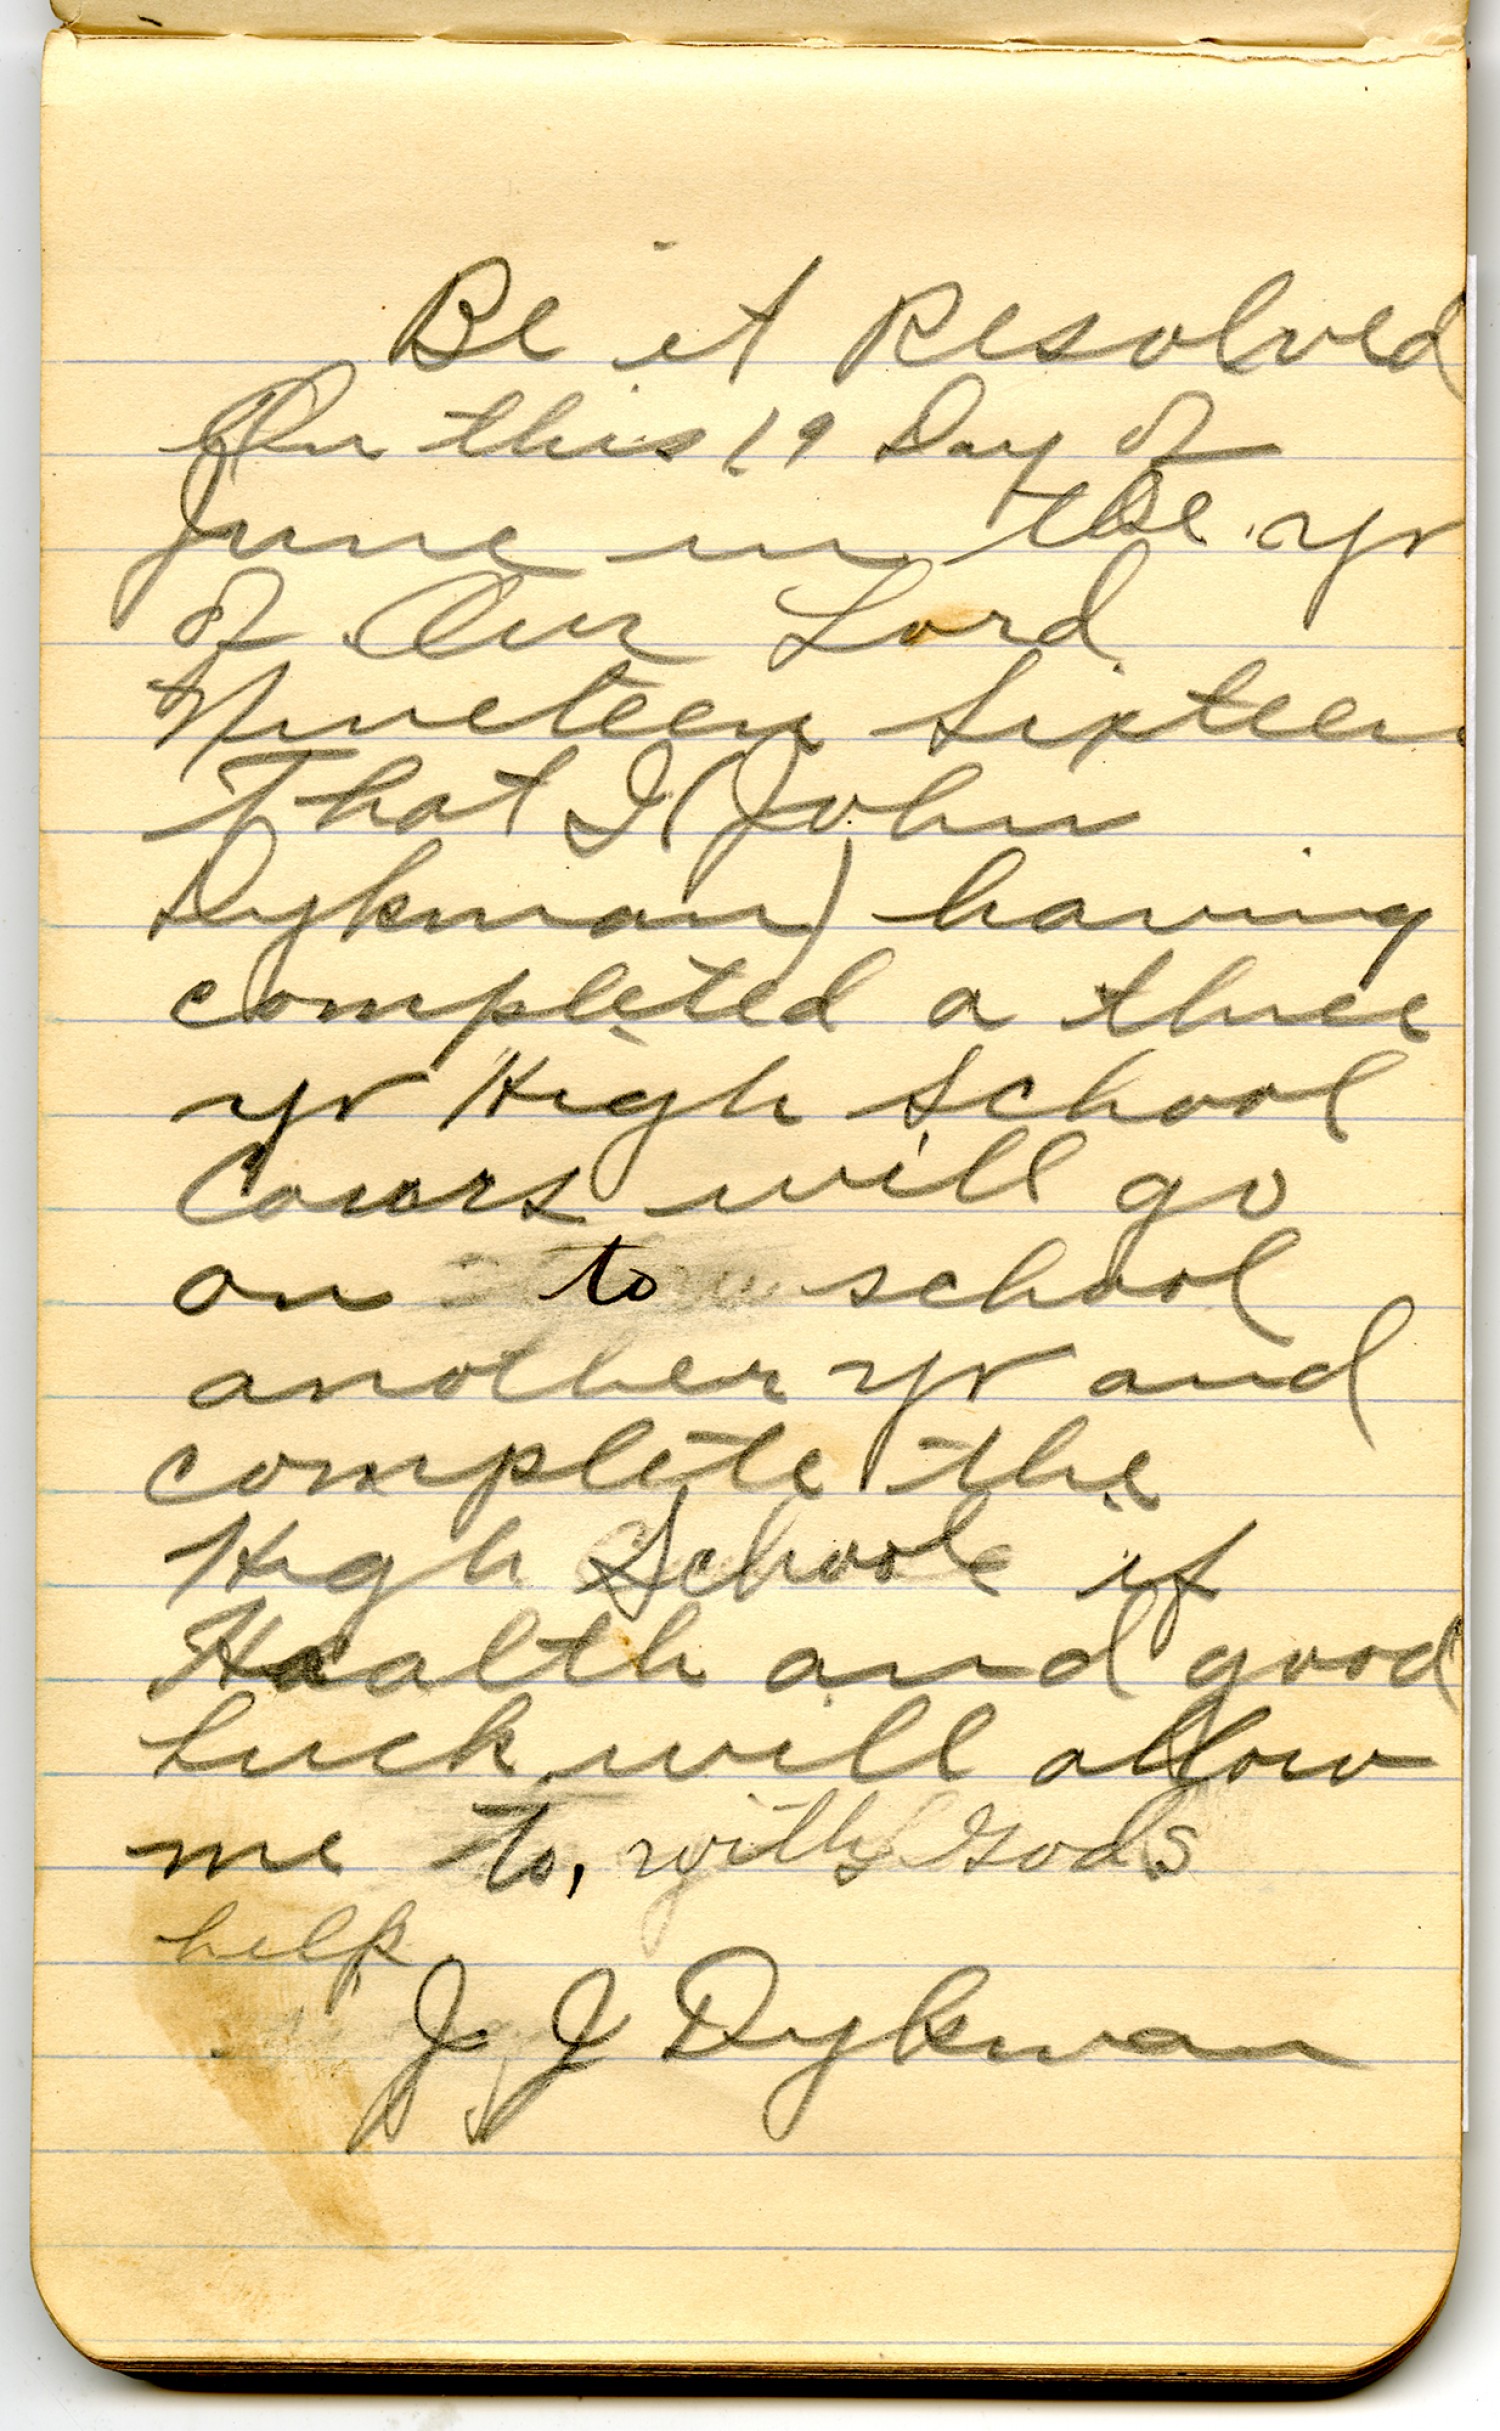 Be it Resolved
On this 19 Day of
June in the yr
of Our Lord
Nineteen Sixteen
That I (John
Dykman) having
completed a three
yr High School
Cours will go
on to school
another yr and
complete the
High Schoole if
Health and good
luck will allow
me to, with Gods
help.
J. J Dykman